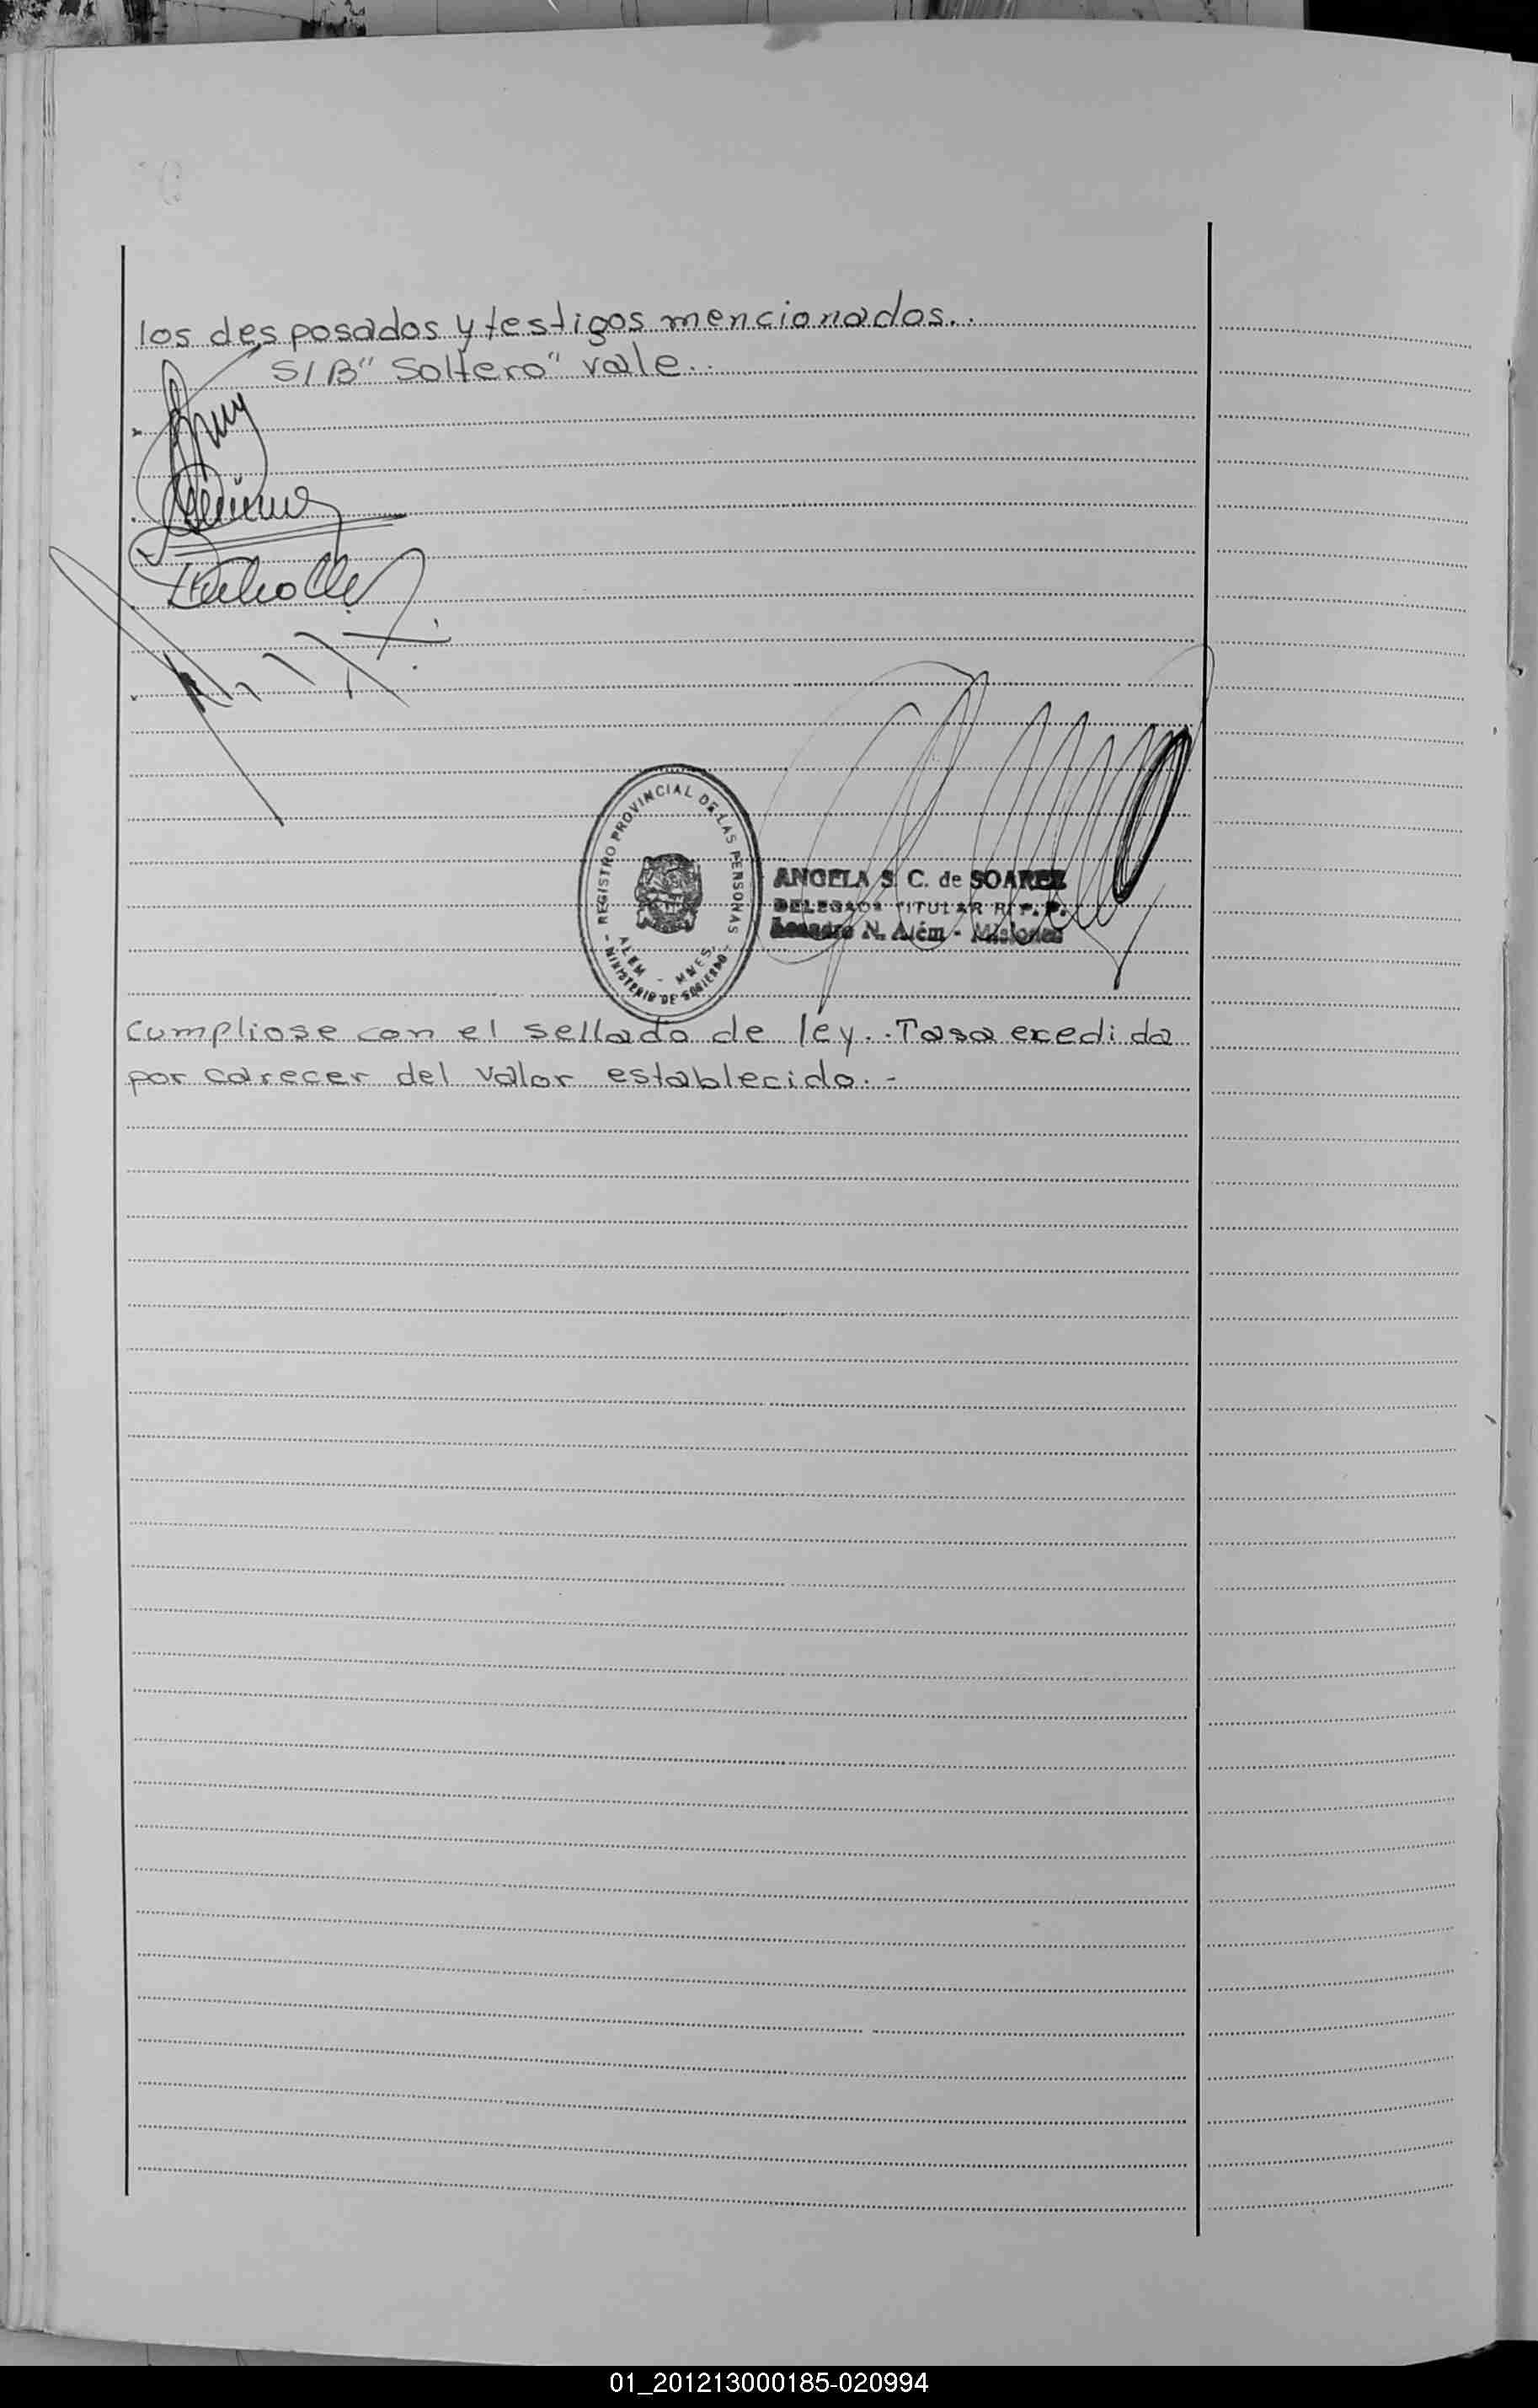 los desposados y testigos mencionados..
S/B" Soltero" vale..
REGISTRO PROVINCIAL DE LAS PERSONAS
ALEM - MNES.
- MINISTERIO DE GOBIERNO -
ANGELA S. C. de SOAREZ
DELEGADA TITULAR R. P. P.
Leandro N. Além - Misiones
Cumpliose con el sellado de ley.. Tasa exedida
por carecer del valor establecido.-
01_201213000185-020994